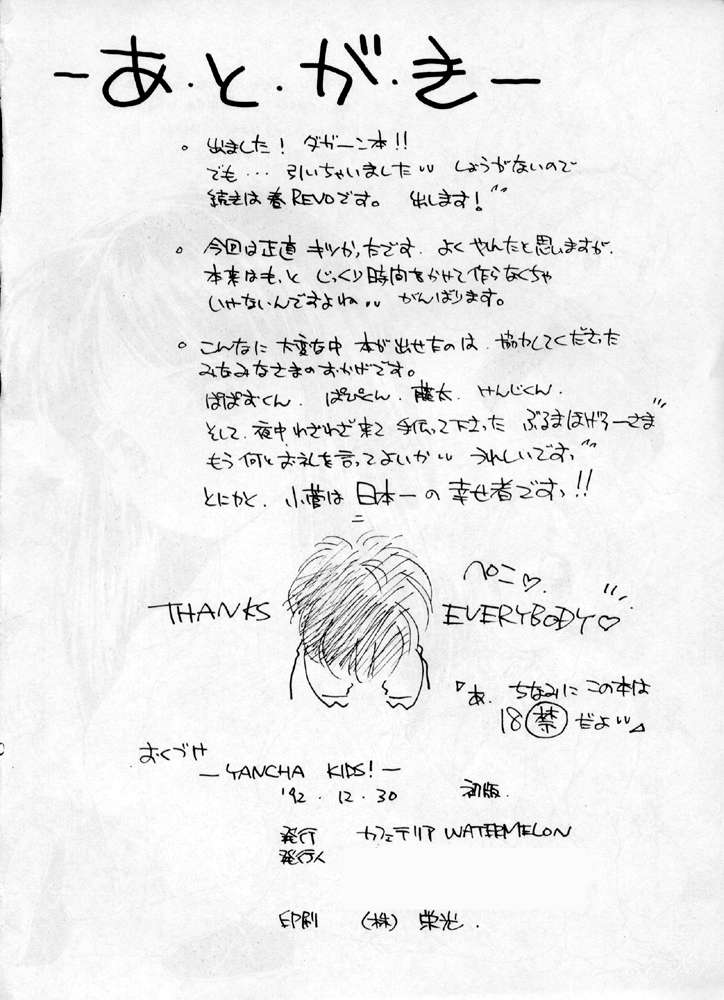 －あ・と・が・き－
。出ました！ ダガーン本！！
でも… 引いちゃいました〃 しょうがないので
続きは春REVOです。 出します！〃
。今回は正直 キツかったです. よくやんたと思いますが.
本来はもっと じっくり時間をかせて作らなくちゃ
いけないんですよね〃 がんばります。
。こんなに 大変な中 本が出せたのは. 協力してくださった
みなみなさまのおかげです。
ぱぱすくん. ぱぴくん. 藤太. けんじくん.
そして. 夜中わざわざ来て 手伝って下さった ぶるまほげろーさま〃
もう何とお礼を言ってよいか〃 うれしいですっ〃
とにかく. 小菅は 日本一の幸せ者ですっ！！
ペこ♡.
THANKS EVERYBODY♡
『あ. ちなみに この本は
18禁だよ〃』
おくづけ
－YANCHA KIDS!－
'92.12.30 初版.
発行 カフェテリア WATERMELON
発行人
印刷 （株） 栄光.